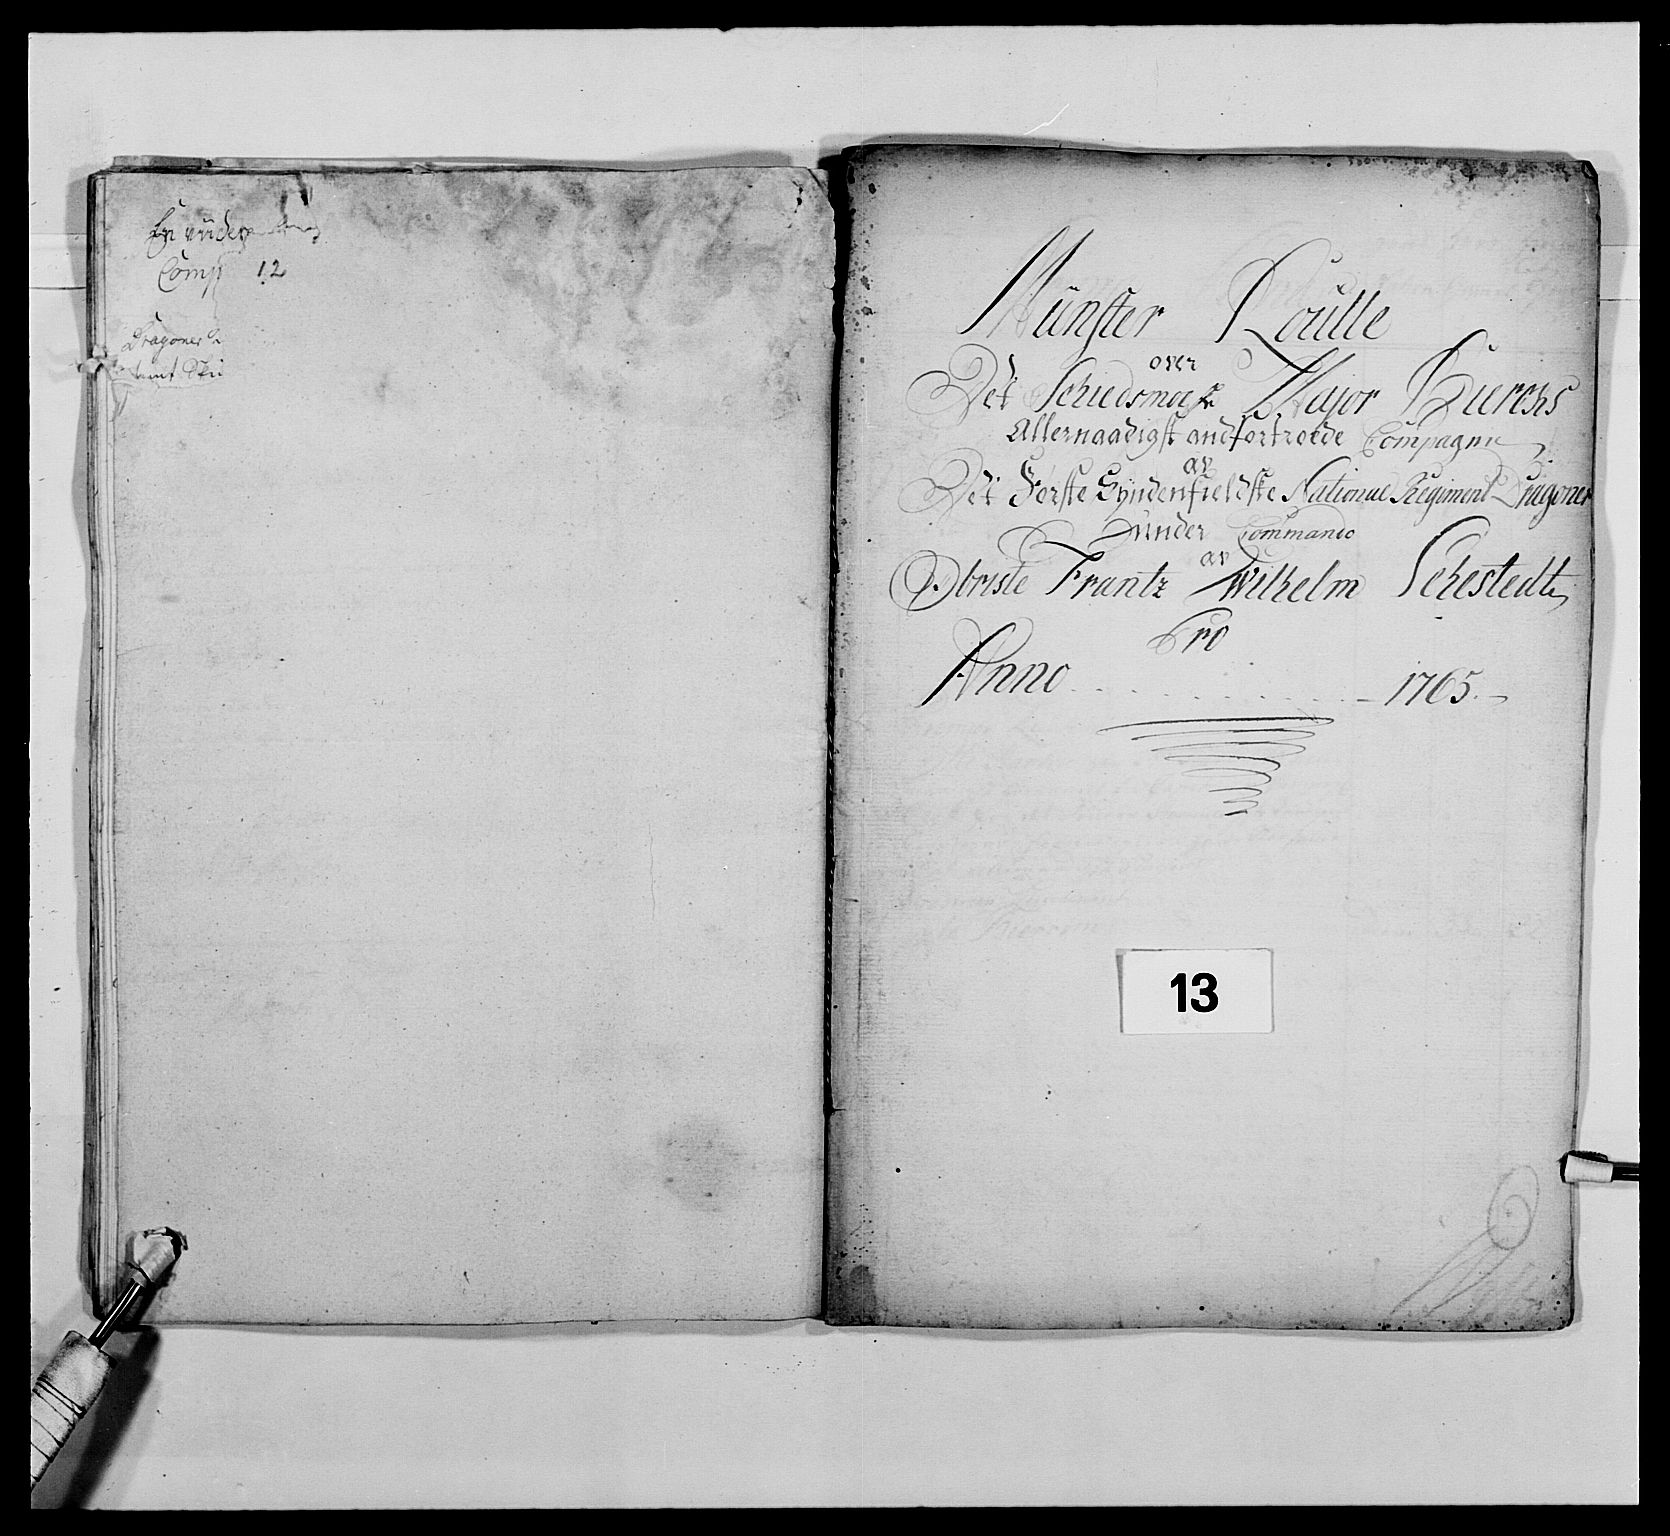 Comp 12
Dragoner
samt
Münster Roulle
over
Det Schiedsmoeske Major Bierchs
Allernaadigst andfortroede Compagnie
av
Det Første Syndenfieldske National Regiment Dragoner
under Commando
av
Obriste Frantz Wilhelm Sehestedt
Pro
Anno 1765.
13